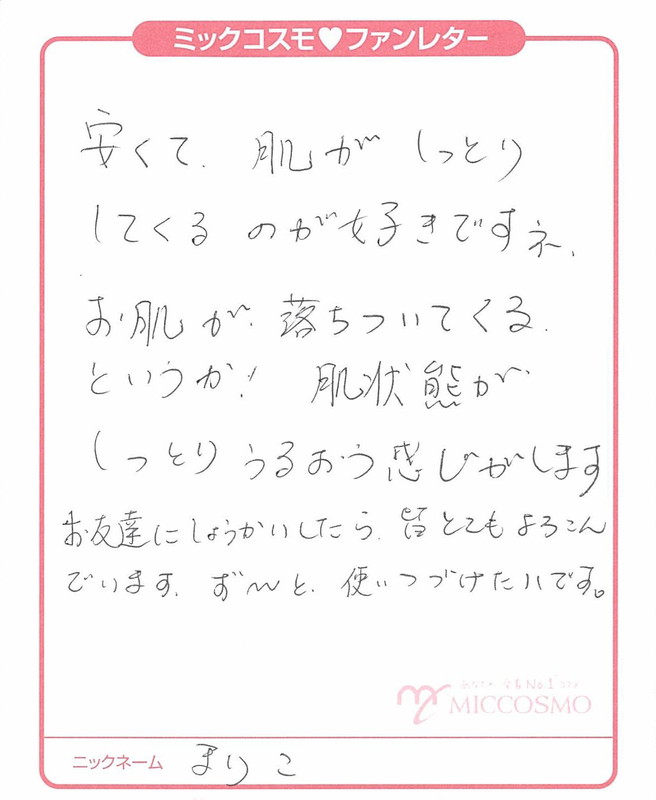 ミックコスモ♥ファンレター
安くて、肌がしっとり
してくるのが好きですネ、
お肌が、落ちついてくる、
というか! 肌状態が
しっとりうるおう感じがします
お友達にしょうかいしたら、皆とてもよろこん
でいます、ず〜と、使いつづけたいです。
No.1
MICCOSMO
ニックネーム まりこ